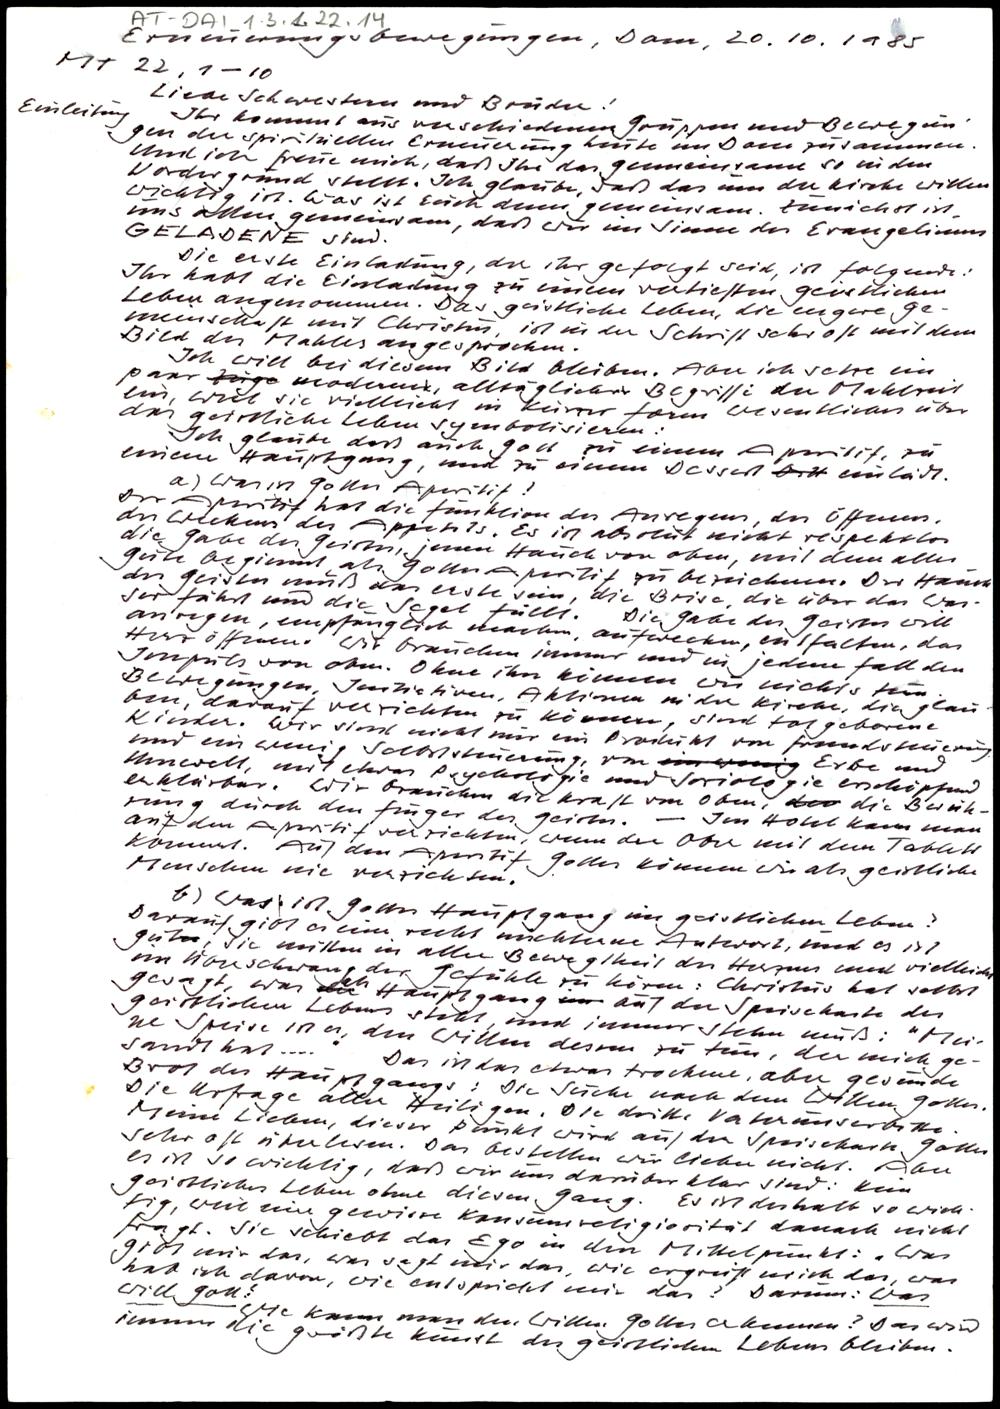 AT-DAI 1.3.1.22.14
Erneuerungsbewegungen, Dom, 20. 10. 1985
Mt 22, 1-10
Liebe Schwestern und Brüder!
Einleitung
Ihr kommt aus verschiedenen Gruppen und Bewegun-
gen der spirituellen Erneuerung heute im Dom zusammen.
Und ich freue mich, daß Ihr das gemeinsame so in den
Vordergrund stellt. Ich glaube, daß das um der Kirche willen
wichtig ist. Was ist Euch denn gemeinsam. Zunächst ist
uns allen gemeinsam, daß wir im Sinne des Evangeliums
GELADENE sind.
Die erste Einladung, der ihr gefolgt seid, ist folgende:
Ihr habt die Einladung zu einem vertieften geistlichen
Leben angenommen. Das geistliche Leben, die engere Ge-
meinschaft mit Christus, ist in der Schrift sehr oft mit dem
Bild des Mahles angesprochen.
Ich will bei diesem Bild bleiben. Aber ich setze ein
paar Züge moderner, alltäglicher Begriffe der Mahlzeit
ein, weil sie vielleicht in kurzer Form Wesentliches über
das geistliche Leben symbolisieren:
Ich glaube daß auch Gott zu einem Aperitif, zu
einem Hauptgang, und zu einem Dessert einlädt.
a) Was ist Gottes Aperitif?
Der Aperitif hat die Funktion des Anregens, des Öffnens,
des Weckens des Appetits. Es ist absolut nicht respektlos
die Gabe des Geistes, jenen Hauch von oben, mit dem alles
Gute beginnt, als Gottes Aperitif zu bezeichnen. Der Hauch
des Geistes muß das erste sein, die Brise, die über das Was-
ser fährt und die Segel füllt. Die Gabe des Geistes will
anregen, empfänglich machen, aufwecken, entfalten, das
Herz öffnen. Wir brauchen immer und in jedem Fall den
Impuls von oben. Ohne ihn können wir nichts tun.
Bewegungen, Initiativen, Aktionen in der Kirche, die glau-
ben, darauf verzichten zu können, sind totgeborene
Kinder. Wir sind nicht nur ein Produkt von Fremdsteuerung
und ein wenig Selbststeuerung, von ein wenig Erbe und
Umwelt, mit etwas Psychologie und Soziologie erschöpfend
erklärbar. Wir brauchen die Kraft von oben, die Berüh-
rung durch den Finger des Geistes. — Im Hotel kann man
auf den Aperitif verzichten, wenn der Ober mit dem Tablett
kommt. Auf den Aperitif Gottes können wir als geistliche
Menschen nie verzichten.
b) Was ist Gottes Hauptgang im geistlichen Leben?
Darauf gibt es eine recht nüchterne Antwort, und es ist
gut, sie mitten in aller Bewegtheit des Herzens und vielleicht
im Überschwang der Gefühle zu hören: Christus hat selbst
gesagt, was als Hauptgang auf der Speisekarte des
geistlichen Lebens steht und immer stehn muß: "Mei-
ne Speise ist es, den Willen dessen zu tun, der mich ge-
sandt hat ...."
Das ist das etwas trockene, aber gesunde
Brot des Hauptgangs: Die Suche nach dem Willen Gottes.
Die Urfrage aller Heiligen. Die dritte Vaterunserbitte.
Meine Lieben, dieser Punkt wird auf der Speisekarte Gottes
sehr oft überlesen. Das bestellen wir lieber nicht. Aber
es ist so wichtig, daß wir uns darüber klar sind: Kein
geistliches Leben ohne diesen Gang. Es ist deshalb so wich-
tig, weil eine gewisse Konsumreligiosität danach nicht
fragt. Sie schiebt das Ego in den Mittelpunkt: "Was
gibt mir das, was sagt mir das, wie ergreift mich das, was
hab ich davon, wie entspricht mir das? Darum: Was
will Gott?
Wie kann man den Willen Gottes erkennen? Das wird
immer die größte Kunst des geistlichen Lebens bleiben.